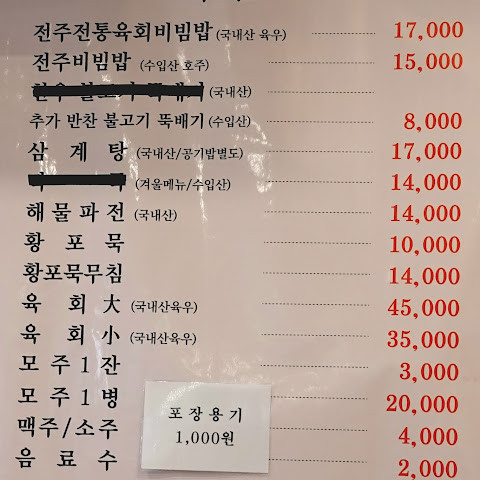 전주전통육회비빔밥(국내산 육우) 17,000
전주비빔밥 (수입산 호주) 15,000
(국내산)
추가 반찬 불고기 뚝배기(수입산) 8,000
삼계탕 (국내산/공기밥별도) 17,000
(겨울메뉴/수입산) 14,000
해물파전 (국내산) 14,000
황포묵 10,000
황포묵무침 14,000
육회大 (국내산육우) 45,000
육회小 (국내산육우) 35,000
모주1잔 3,000
모주1병 20,000
맥주/소주 4,000
음료수 2,000
포장용기
1,000원